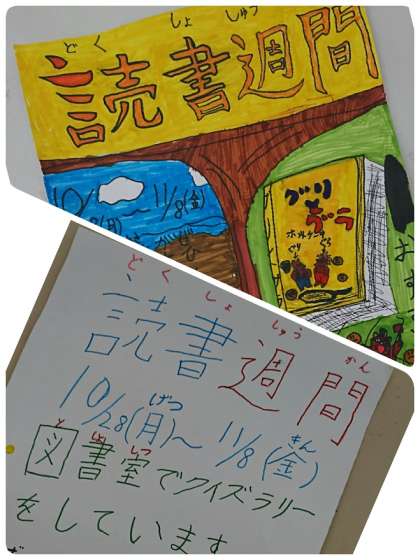 どく しょ しゅう
読書週間
10/28(月)
11/8(金)
ぜひ
ぐりとぐら
どく しょ しゅう かん
読書週間
げつ きん
10/28(月)～11/8(金)
と しょ しつ
図書室でクイズラリー
をしています